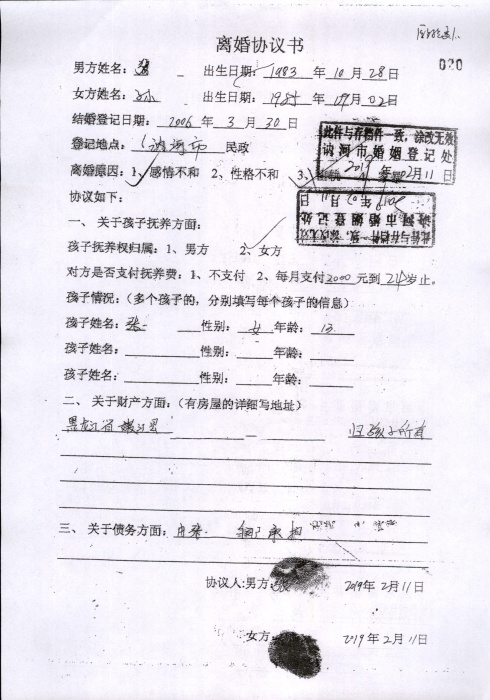 离婚协议书
020
男方姓名：张 出生日期：1983 年 10 月 28 日
女方姓名：孙 出生日期：1985 年 09 月 02 日
结婚登记日期：2006 年 3 月 30 日
登记地点：讷河市 民政
此件与存档件一致，涂改无效
讷河市婚姻登记处
2019 02月11日
离婚原因：1、感情不和 2、性格不和 3、
协议如下：
此件与存档件一致，涂改无效
讷河市婚姻登记处
年 月11日
一、关于孩子抚养方面：
孩子抚养权归属：1、男方 2、女方
对方是否支付抚养费：1、不支付 2、每月支付2000元到24岁止。
孩子情况：（多个孩子的，分别填写每个孩子的信息）
孩子姓名：张 性别：女 年龄：13
孩子姓名： 性别： 年龄：
孩子姓名： 性别： 年龄：
二、关于财产方面：（有房屋的详细写地址）
黑龙江省嫩江县 归孩子所有
三、关于债务方面：由张 承担
协议人:男方 张 2019年 2月11日
女方 2019年 2月11日